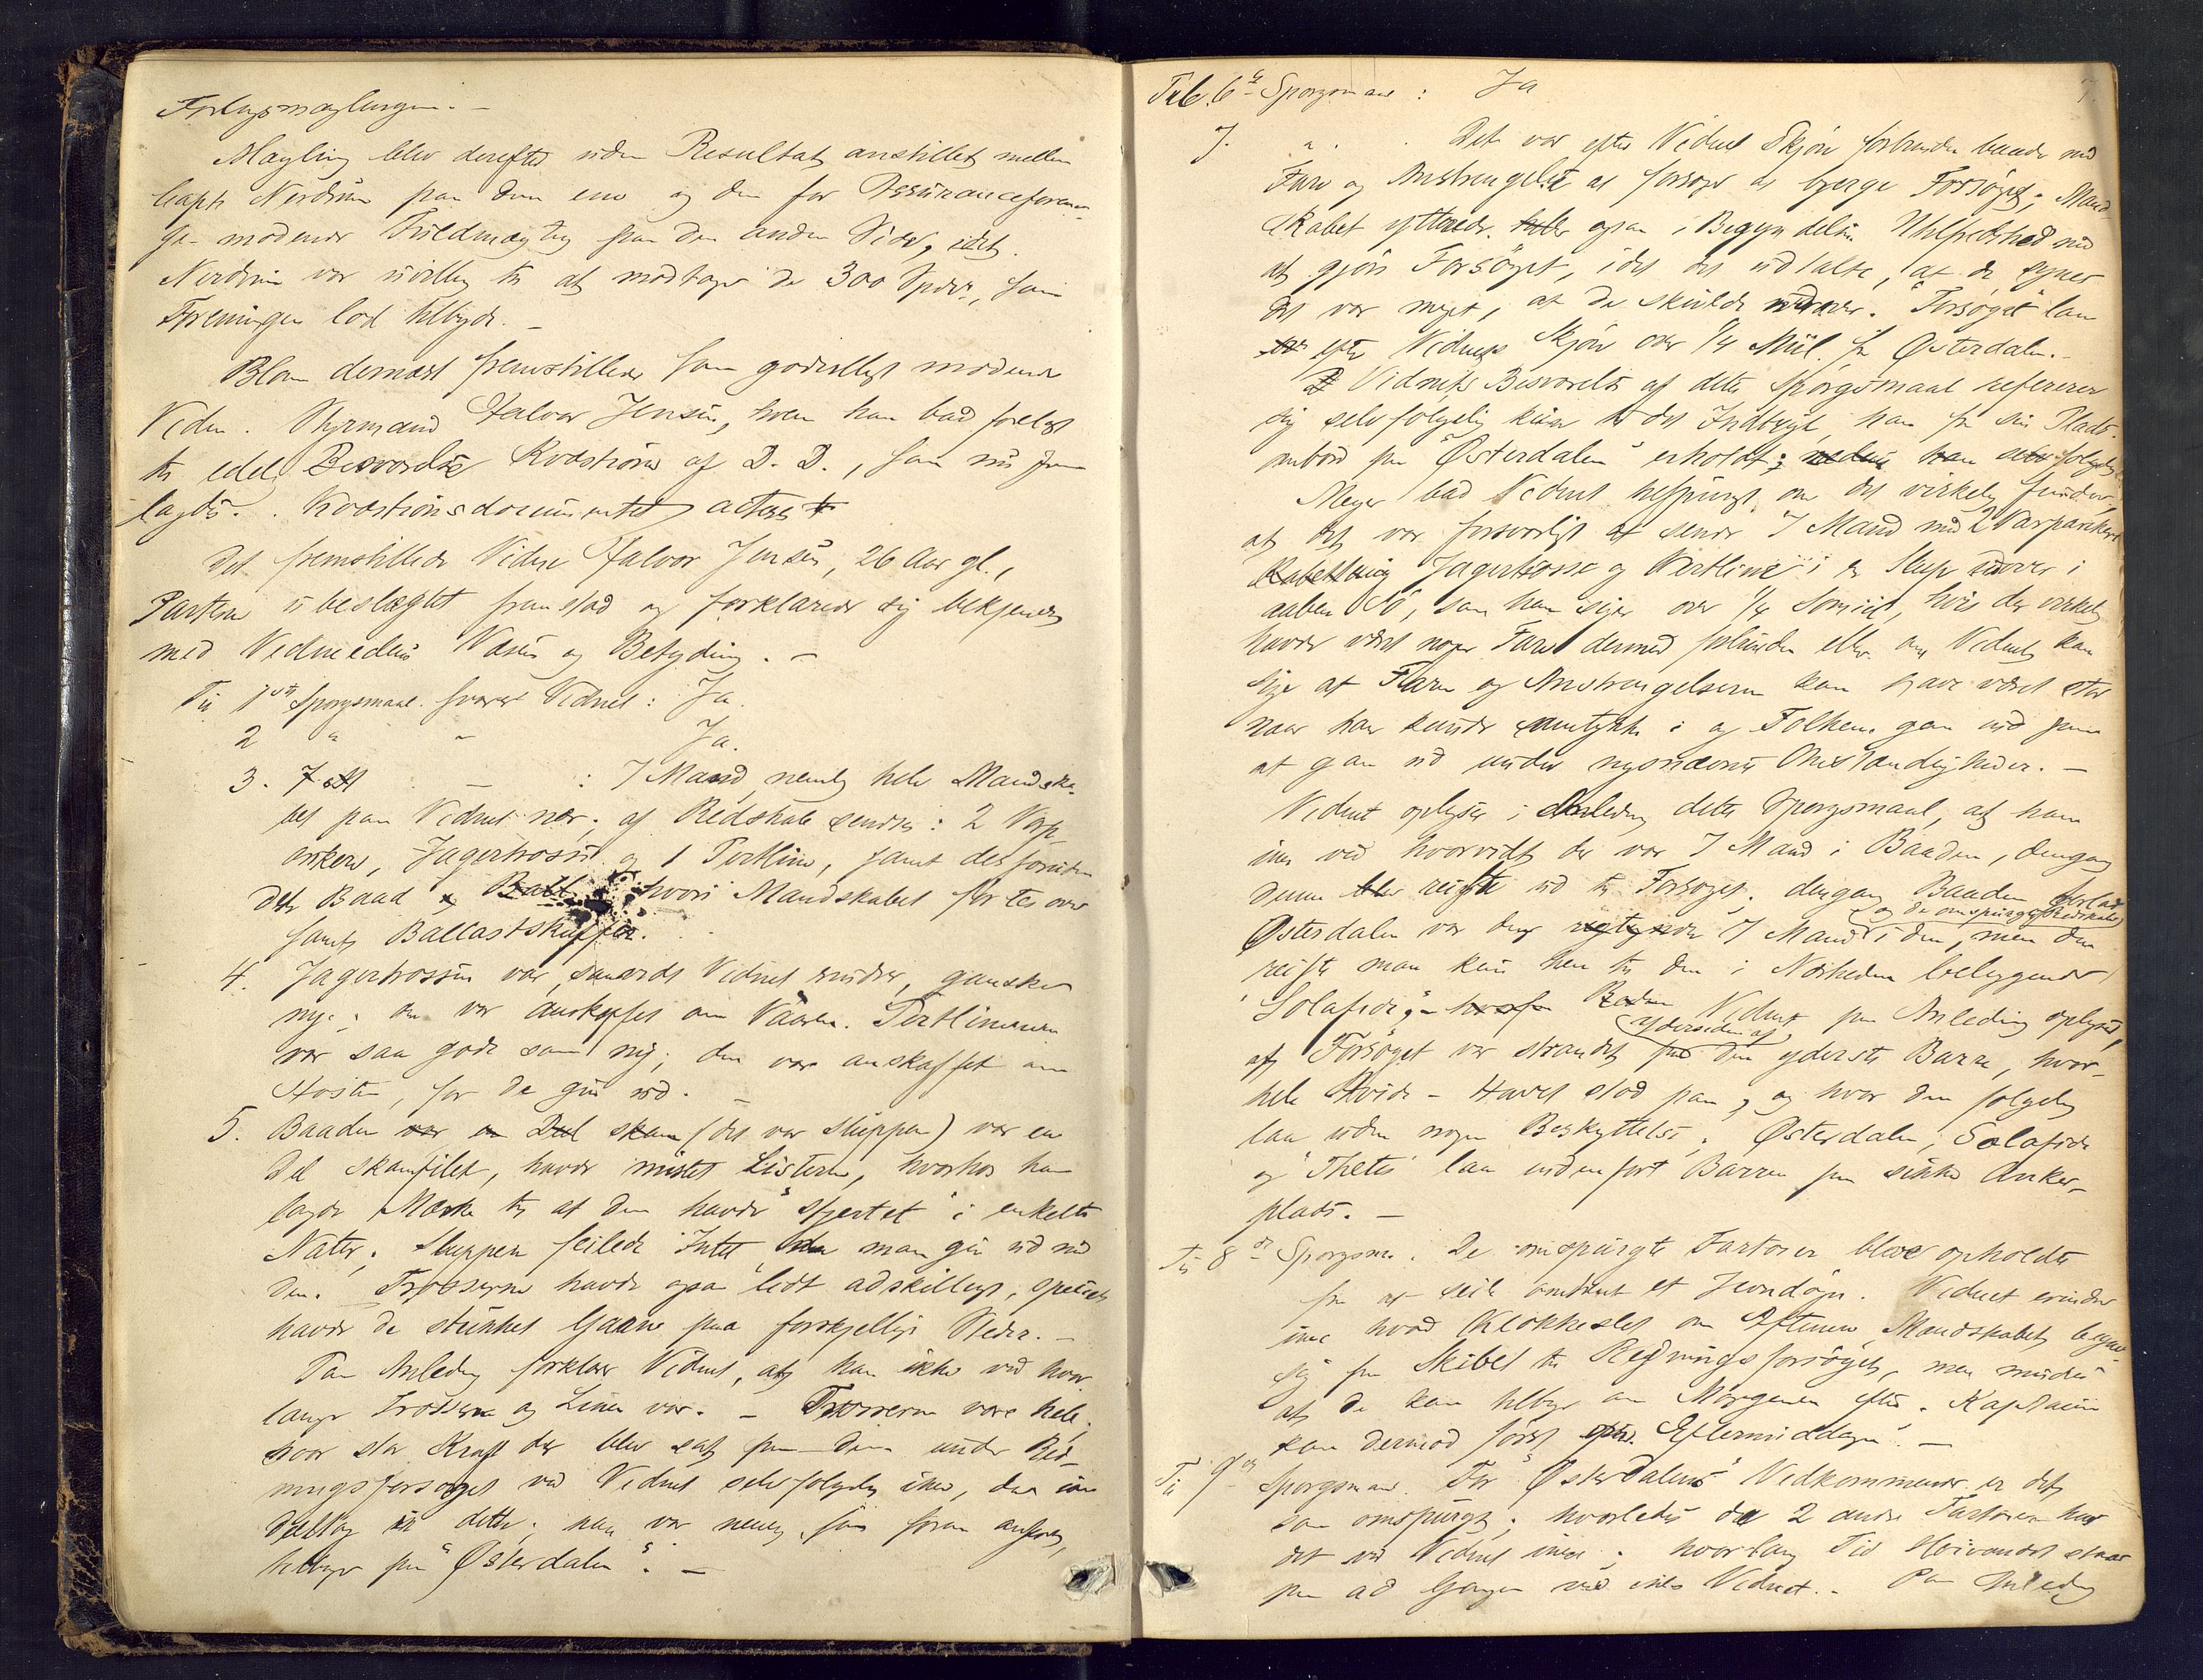 Forligsmæglingen. —
Mægling blev derefter uden Resultat anstillet mellem
Capt. Nordrum paa den ene og den for Assuranceforenin-
gen mødende Fuldmægtig paa den anden Side, idet
Nordrum var uvillig til at modtage de 300 Spdlr., som
Foreningen lod tilbyde. —
Blom dernæst fremstillede som godvilligt mødende
Vidne Styrmand Halvor Jensen, hvem han bad forelagt
til edel. Besvarelse Kvæstioner af D. D., som nu frem-
lagdes. Kvæstionsdocumentet acteres
Det fremstillede Vidne Halvor Jensen, 26 Aar gl.,
Parterne ubeslægtet fremstod og forklarede sig bekjendt
med Vidneedens Væsen og Betydning. —
Til 1ste Spørgsmaal svarer Vidnet: Ja.
2 " " Ja.
3. — : 7 Mand nemlig hele Mandska-
bet paa Vidnet nær; af Redskab sendtes: 2 Varp-
ankere, Jagertrossen og 1 Pertline, samt desforuden
det Baad hvori Mandskabet førtes over
samt Ballastskuffer.
4. Jagertrossen var, saavidt Vidnet erindrer, ganske
ny; den var anskaffet om Vaaren. Pertlinen
var saa godt som ny; den var anskaffet om
Høsten, før de gik ud. —
5. Baaden var en Del skam (det var Sluppen) var en
Del skamfilet, havde mistet Listerne, hvorhos han
lagde Mærke til at den havde "stjertet" i enkelte
Nater; Sluppen feilede Intet da man gik ud med
den. Trosserne havde ogsaa lidt adskilligt, specielt
havde de stukket Gaarne paa forskjellige Steder. —
Paa Anledning forklarer Vidnet, at han ikke ved hvor
lange Trosserne og Linen var. — Trosserne vare hele;
hvor stor Kraft der blev sat paa dem under Red-
ningsforsøget ved Vidnet selvfølgelig ikke, da han ikke
deltog i dette; han var nemlig, som foran anført,
tilbage paa "Østerdalen". —
7.
Til 6te Spørgsmaal: Ja
7. " . Det var efter Vidnets Skjøn forbunden baade med
Fare og Anstrengelse at forsøge at bjerge Forsøget; Mand-
skabet yttrede ogsaa i Begyndelsen Utilfredshed med
at gjøre Forsøget, idet det udtalte, at de synes
det var meget, at de skulde udover. "Forsøget" laa
efter Vidnets Skjøn over 1/4 Miil fra Østerdalen. —
Vidnets Besvarelse af dette Spørgsmaal refererer
sig selvfølgelig kun til det Indtryk, han fra sin Plads
ombord paa "Østerdalen" erholdt;
Meyer bad Vidnet tilspurgt om det virkelig finder,
at det var forsvarligt at sende 7 Mand med 2 Varpankere
Jagertrosse og Pertline i en Slup udover i
aaben Sø, som han siger over 1/4 Sømiil, hvis der virkelig
havde været nogen Fare dermed forbunden eller om Vidnet kan
sige at Faren og Anstrengelserne kan have været stor
naar han kunde samtykke i og Folkene gaa ind paa
at gaa ud under nysnævnte Omstændigheder. —
Vidnet oplyser i Anledning dette Spørgsmaal, at han
ikke ved hvorvidt der var 7 Mand i Baaden, dengang
denne reiste ud til Forsøget; dengang Baaden forlod
Østerdalen var der 7 Mand og de omspurgte Redskaber i den, men den
reiste man kun hen til den i Nærheden beliggende
"Solafide". Vidnet paa Anledning oplyser,
at Forsøget var strandet ydersiden af den yderste Barre, hvor
hele Hvide-Havet stod paa, og hvor den følgelig
laa uden nogen Beskyttelse; Østerdalen, Solafide
og "Thetis" laa indenfor Barren paa sikker Anker-
plads. —
Til 8de Spørgsm. De omspurgte Fartøier bleve opholdte
fra at seile omtrent et Jevndøgn. Vidnet erindrer
ikke hvad Klokkeslet om Aftenen Mandskabet begav
sig fra Skibet til Redningsforsøget, men mindes
at de kom tilbage om Morgenen efter. Kaptainen
kom derimod først Eftermiddagen. —
Til 9de Spørgsmaal. For "Østerdalens" Vedkommende er det
som omspurgt; hvorledes de 2 andre Fartøier har
det ved Vidnet ikke; hvorlang Tid Høivandet staar
paa ad Gangen ved ikke Vidnet. Paa Anledning